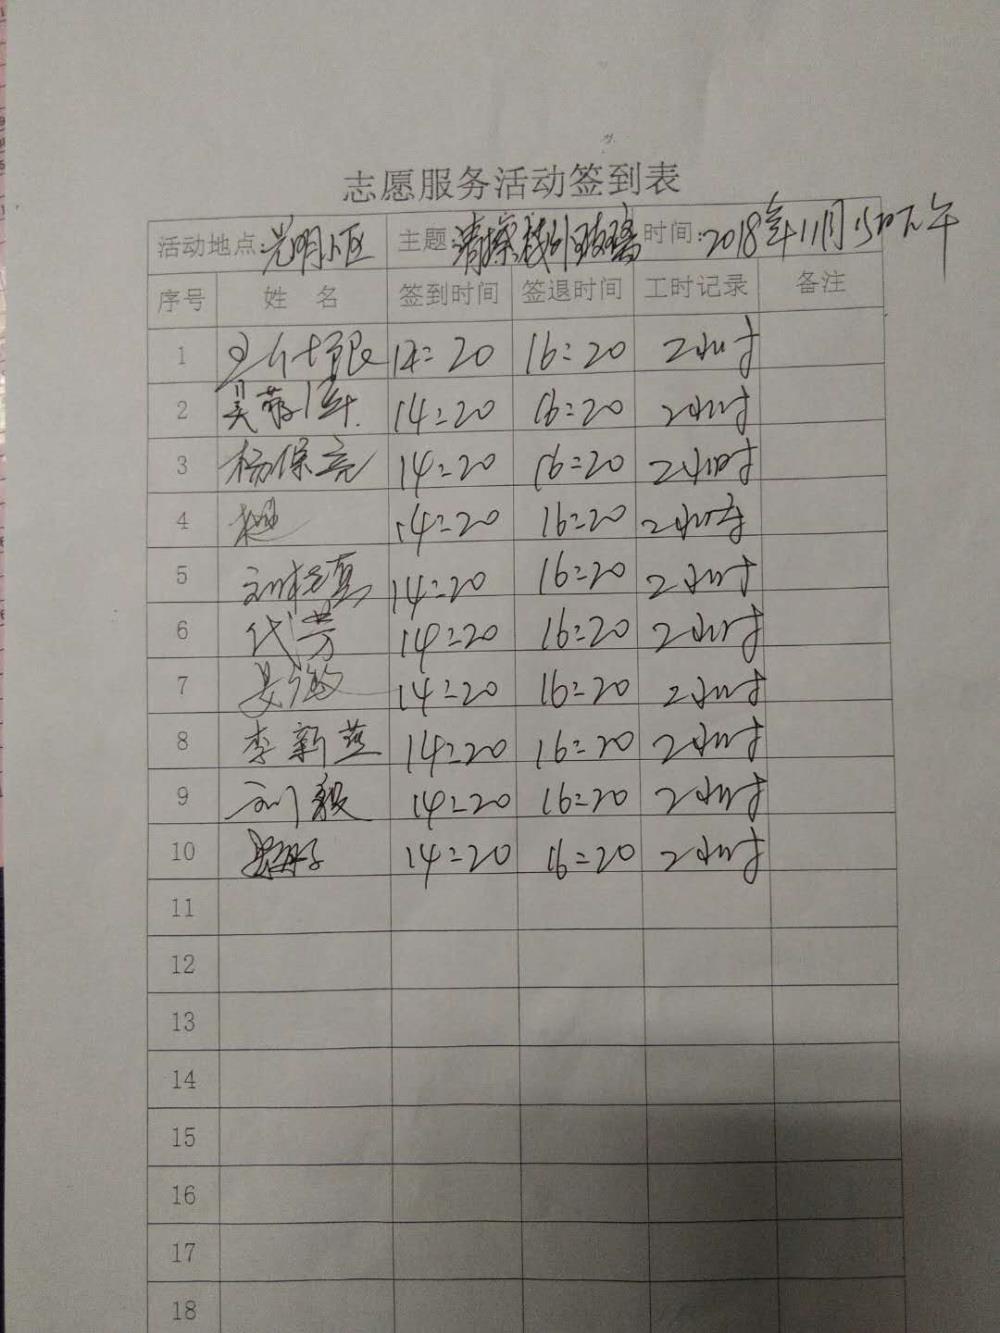 志愿服务活动签到表
活动地点:光明小区 主题:清擦 玻璃 时间:2018年11月15日下午
序号 姓 名 签到时间 签退时间 工时记录 备注
1 14:20 16:20 2小时
2 吴 14:20 16:20 2小时
3 杨保亮 14:20 16:20 2小时
4 14:20 16:20 2小时
5 刘 14:20 16:20 2小时
6 代芳 14:20 16:20 2小时
7 14:20 16:20 2小时
8 李新燕 14:20 16:20 2小时
9 刘毅 14:20 16:20 2小时
10 14:20 16:20 2小时
11
12
13
14
15
16
17
18